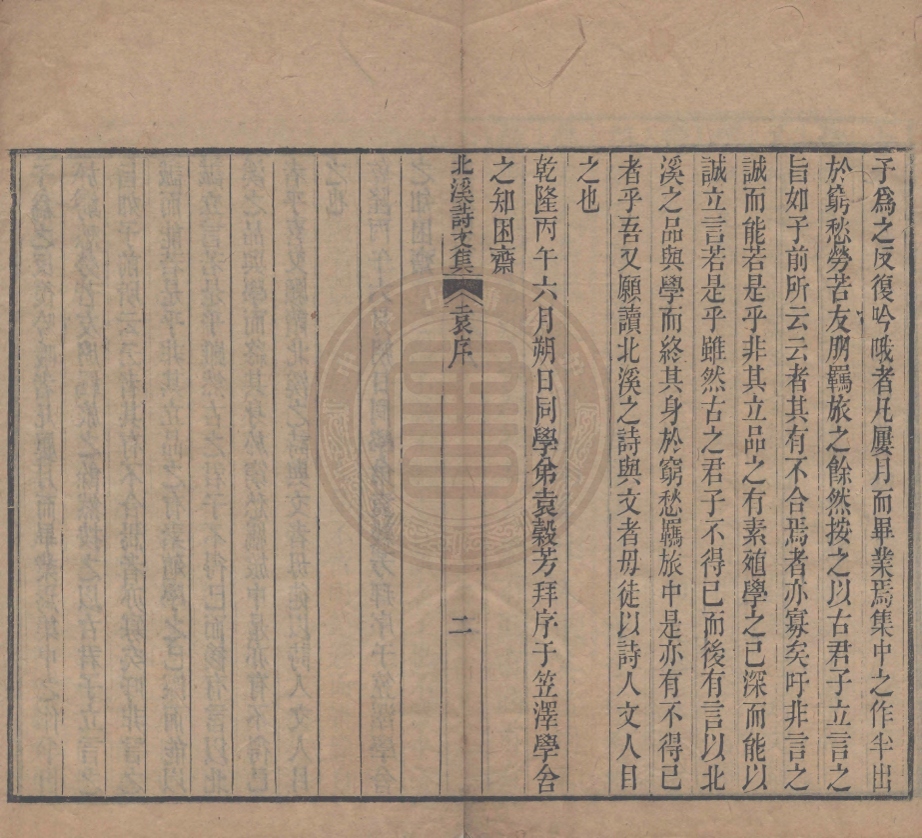 予爲之反復吟哦者凡屢月而畢業焉集中之作半出
於窮愁勞苦友朋羈旅之餘然按之以古君子立言之
旨如予前所云云者其有不合焉者亦寡矣吁非言之
誠而能若是乎非其立品之有素殖學之已深而能以
誠立言若是乎雖然古之君子不得已而後有言以北
溪之品與學而終其身於窮愁羈旅中是亦有不得已
者乎吾又願讀北溪之詩與文者毋徒以詩人文人目
之也
乾隆丙午六月朔日同學弟袁穀芳拜序于笠澤學舍
之知困齋
北溪詩文集 袁序 二